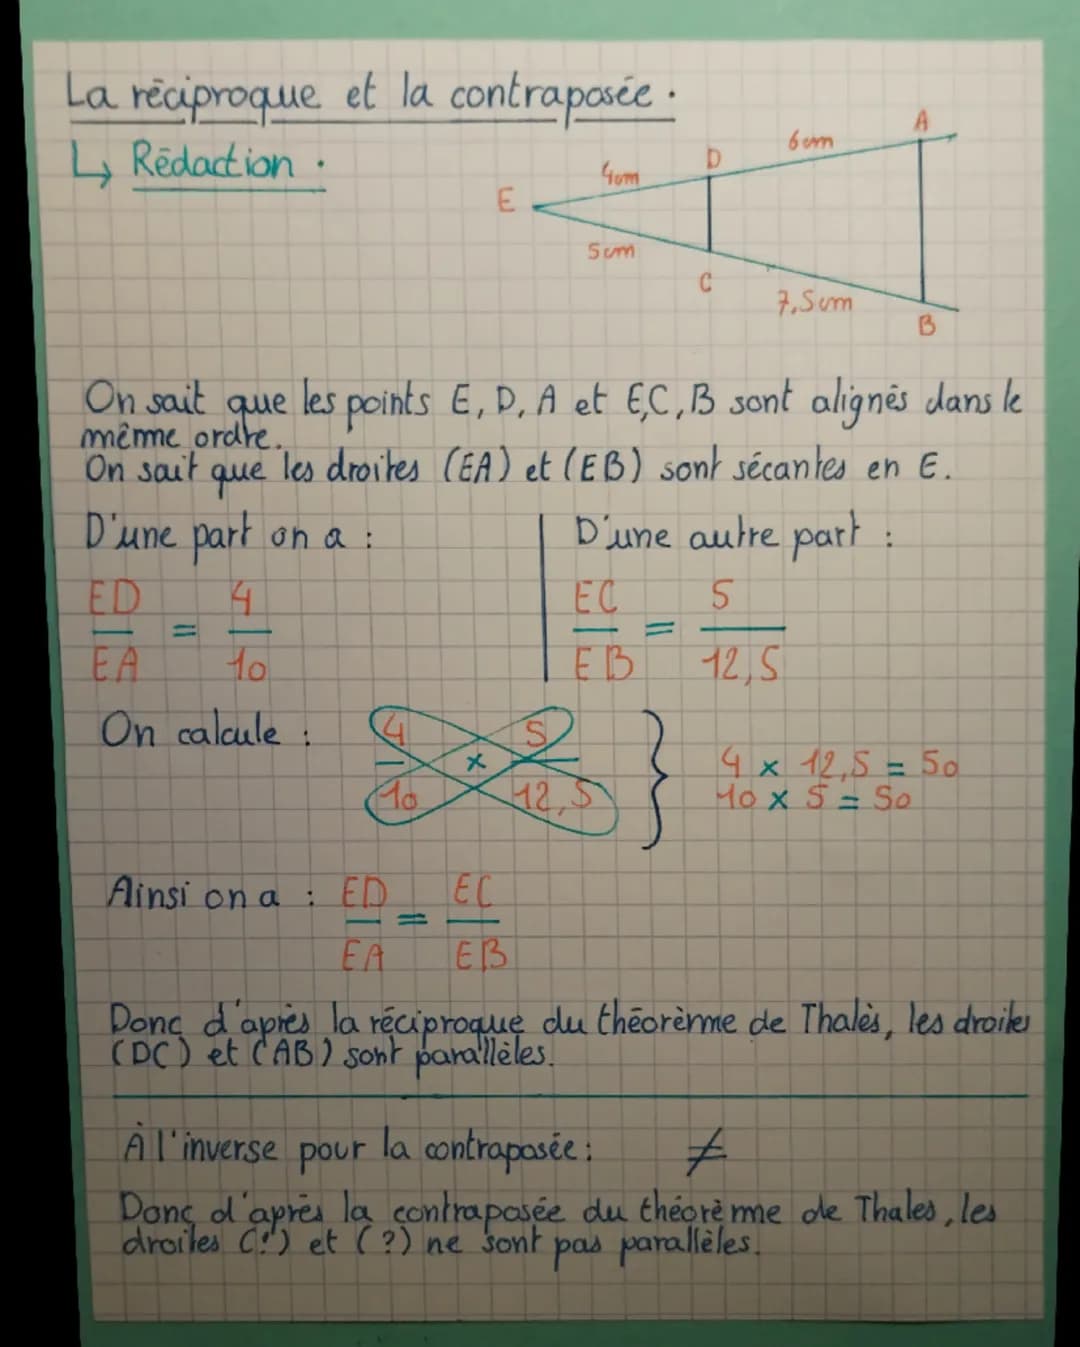 La réciproque et la contraposée.
↳ Rédaction.
A
6cm
D
4cm
E
5cm
C
7,5cm
B
On sait que les points E, D, A et E,C,B sont alignés dans le
même ordre.
On sait que les droites (EA) et (EB) sont sécantes en E.
D'une part on a :
ED/EA = 4/10
D'une autre part :
EC/EB = 5/12,5
On calcule : 4/10 × 5/12,5 } 4 × 12,5 = 50
10 × 5 = 50
Ainsi on a : ED/EA = EC/EB
Donc d'après la réciproque du théorème de Thalès, les droites
(DC) et (AB) sont parallèles.
À l'inverse pour la contraposée : ≠
Donc d'après la contraposée du théorème de Thales, les
droites (?) et (?) ne sont pas parallèles.